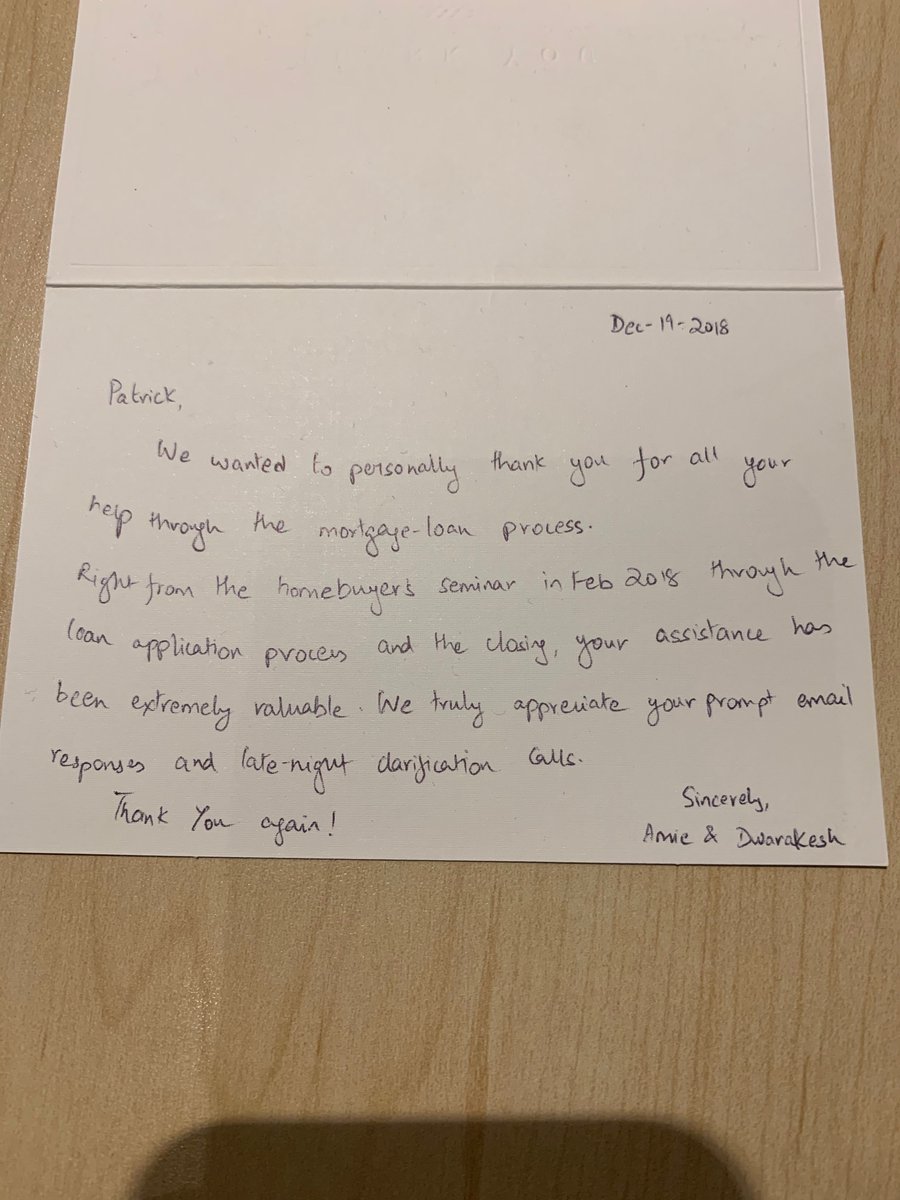 Dec-19-2018
Patrick,
We wanted to personally thank you for all your
help through the mortgage-loan process.
Right from the homebuyer's seminar in Feb 2018 through the
loan application process and the closing, your assistance has
been extremely valuable. We truly appreciate your prompt email
responses and late-night clarification calls.
Thank You again!
Sincerely,
Amie & Dwarakesh